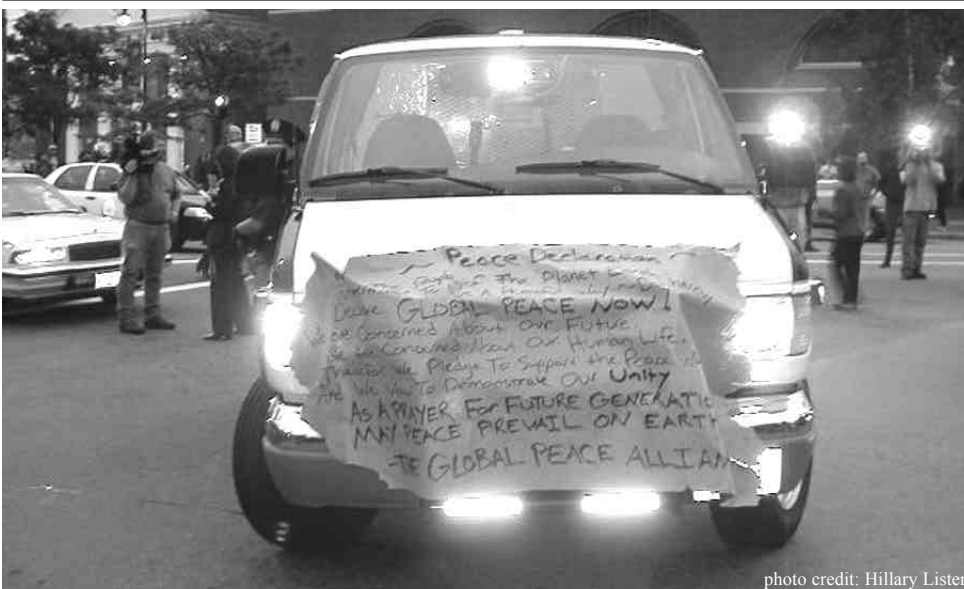 ~ Peace Declaration ~
of The Planet
GLOBAL PEACE NOW!
We are Concerned About Our Future
We are Concerned About Our Human Life.
Therefor We Pledge To Support the Peace
And We Vow To Demonstrate Our Unity
AS A PRAYER For FUTURE GENERATIO
MAY PEACE PREVAIL ON EARTH
-THE GLOBAL PEACE ALLIAN
photo credit: Hillary Lister